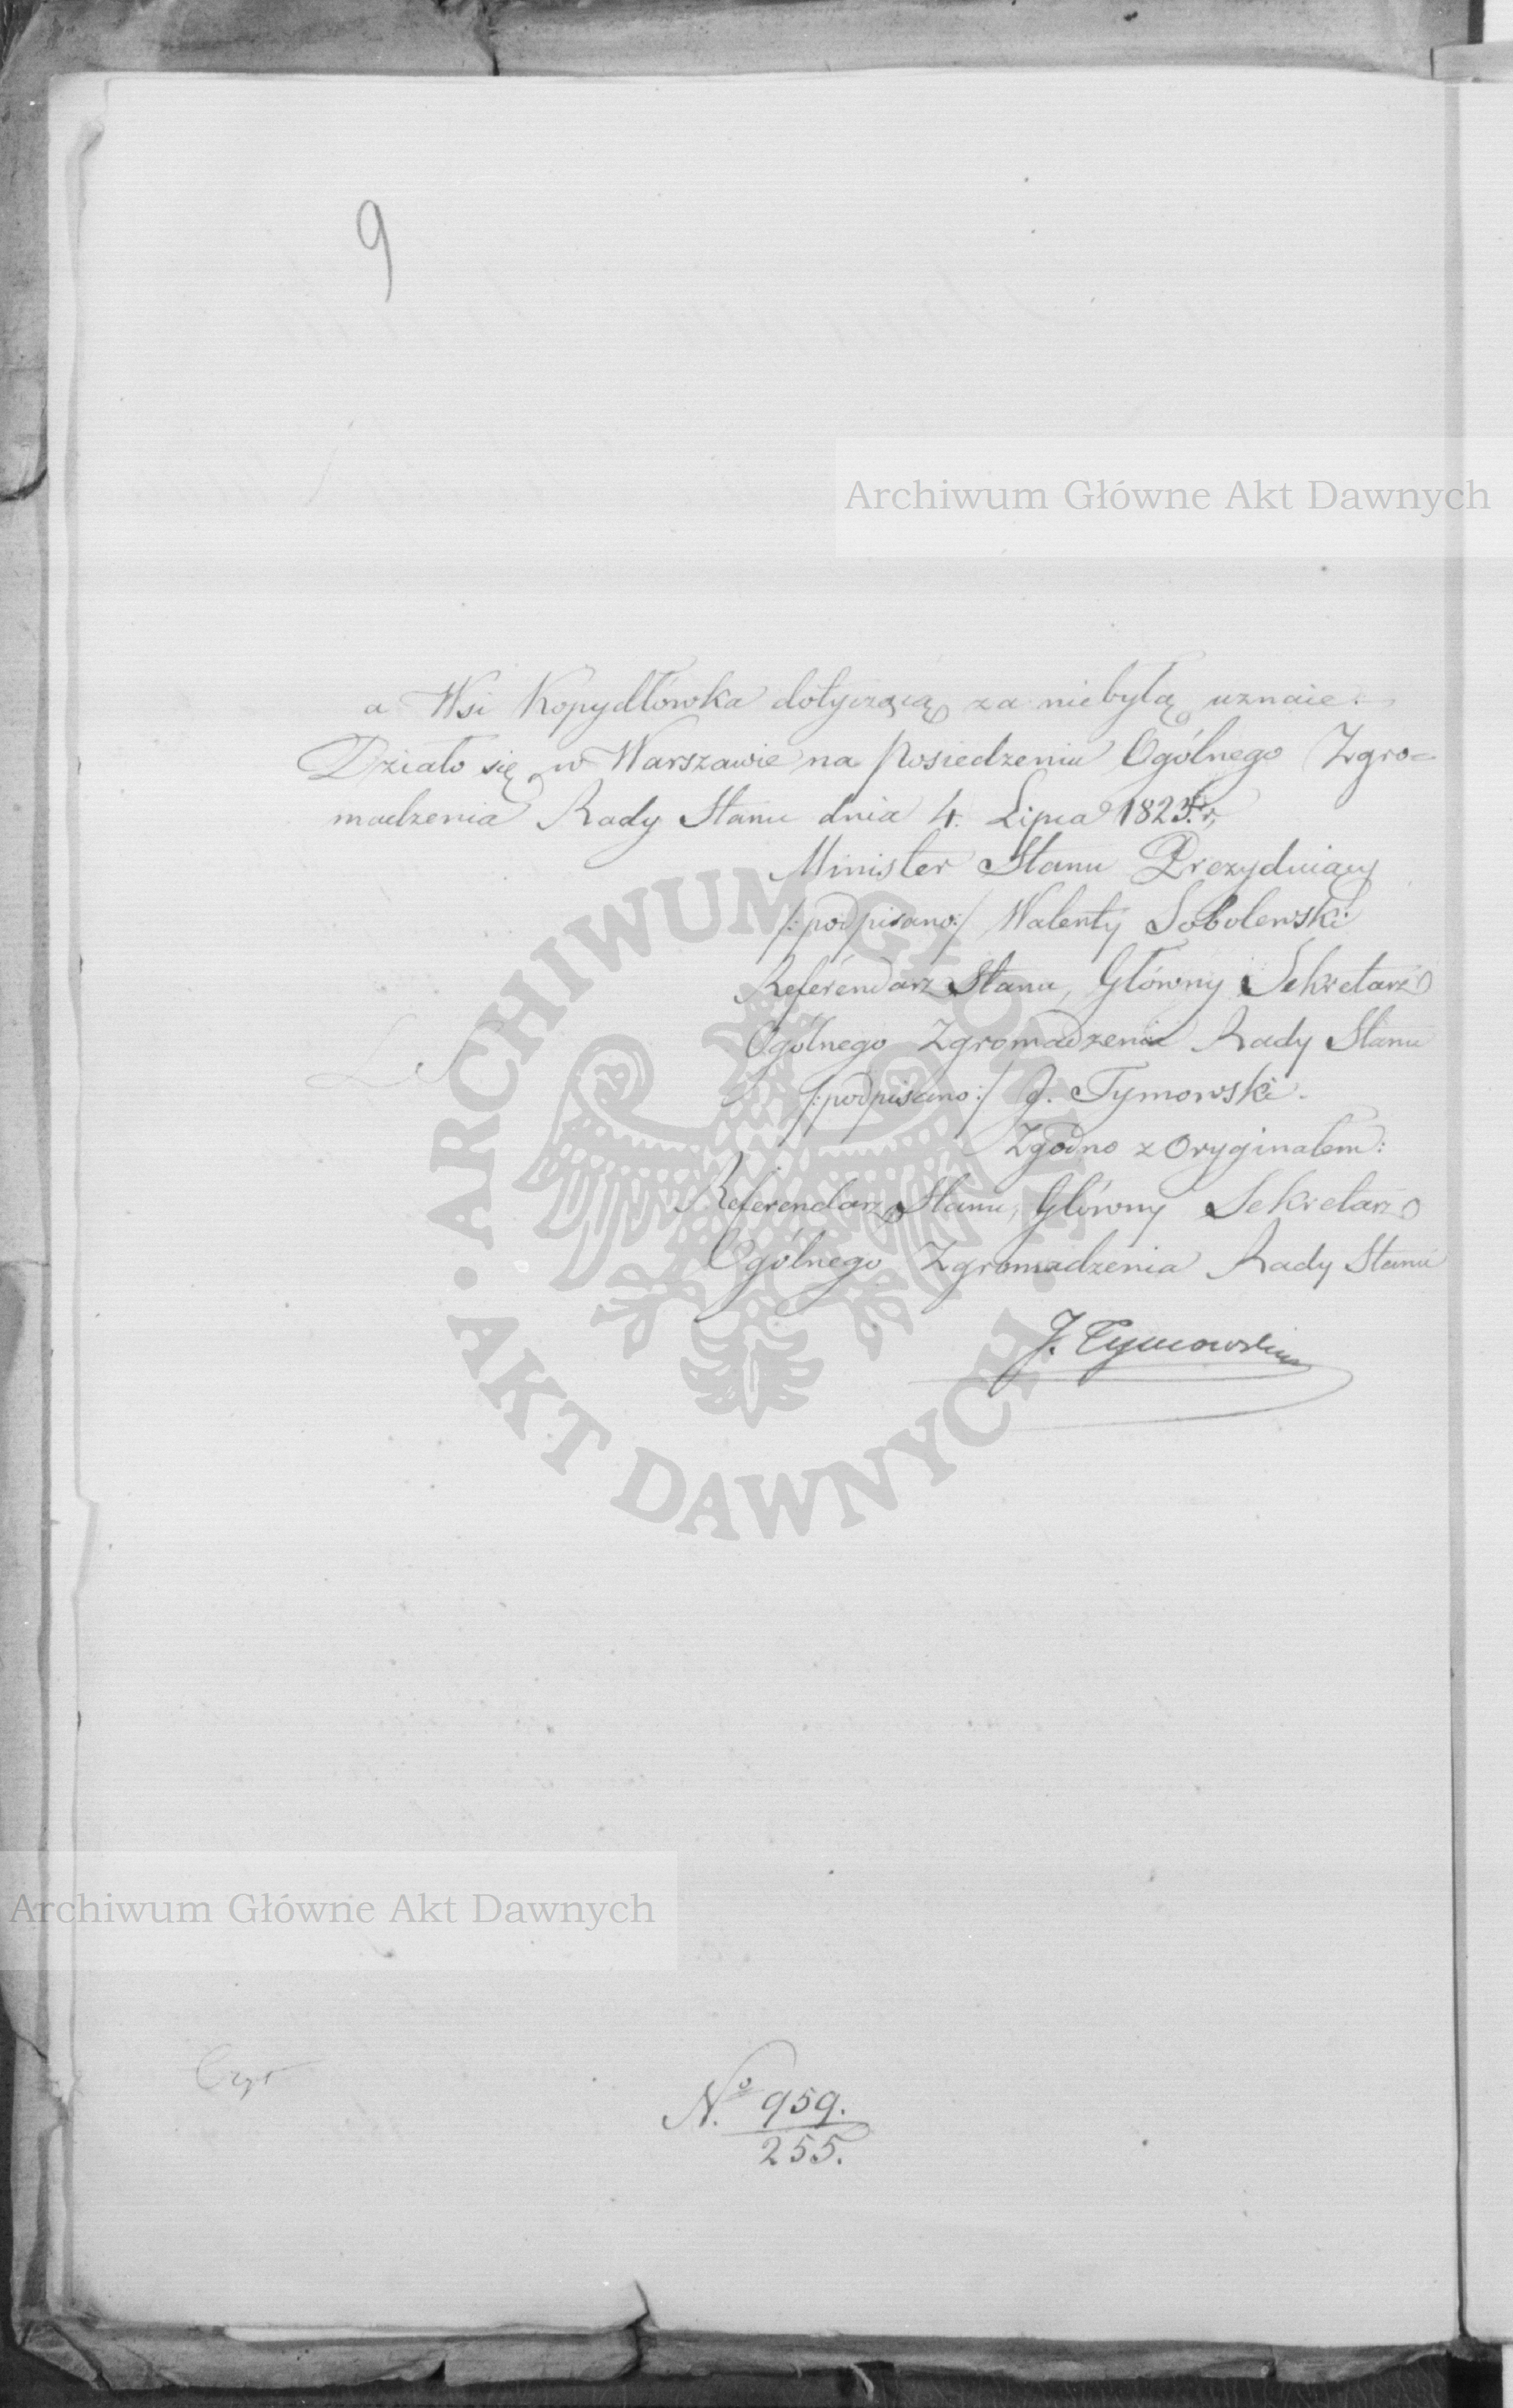 9
Archiwum Główne Akt Dawnych
a Wsi Kopydłówka dotyczącą za niebyłą uznaie.
Działo się w Warszawie na Posiedzeniu Ogólnego Zgro=
madzenia Rady Stanu dnia 4. Lipca 1823. r.
Minister Stanu Prezyduiący
/:podpisano:/ Walenty Sobolewski
Referendarz Stanu, Główny Sekretarz
Ogólnego Zgromadzenia Rady Stanu
/:podpisano:/ J. Tymowski.
Zgodno z Oryginałem:
Referendarz Stanu, Główny Sekretarz
Ogólnego Zgromadzenia Rady Stanu
J. Tymowski
ARCHIWUM GŁÓWNE AKT DAWNYCH
Archiwum Główne Akt Dawnych
No. 959.
255.